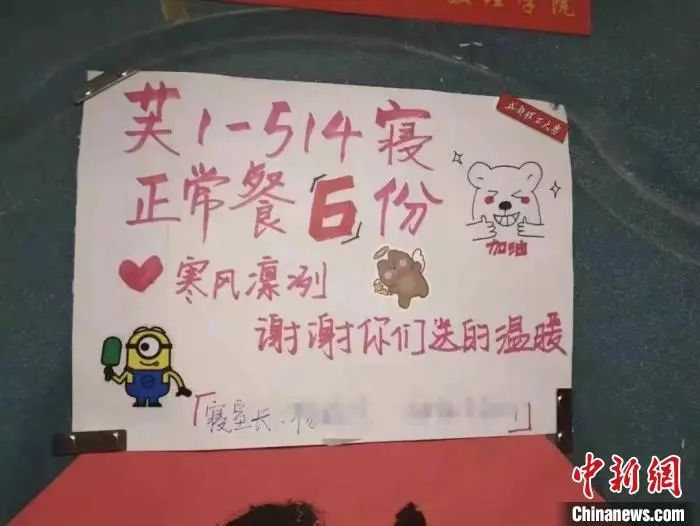 理学院
成都理工大学
芙1-514寝
正常餐「6」份
加油
寒风凛冽
谢谢你们送的温暖
「寝室长·
」
中新网
Chinanews.com